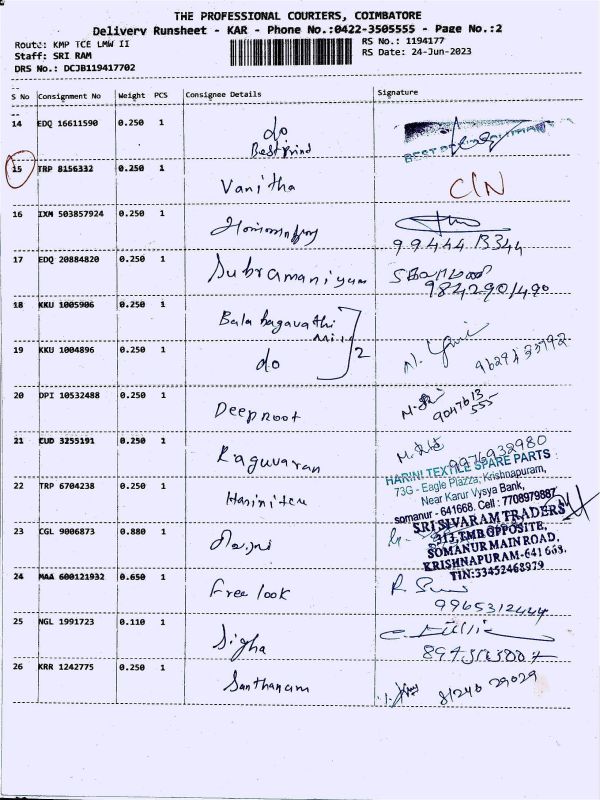 THE PROFESSIONAL COURIERS, COIMBATORE
Delivery Runsheet - KAR - Phone No.:0422-3505555 - Page No.:2
Route: KMP TCE LMW II RS No.: 1194177
Staff: SRI RAM RS Date: 24-Jun-2023
DRS No.: DCJB119417702
S No Consignment No Weight PCS Consignee Details Signature
14 EDQ 16611590 0.250 1 do Bestprind
15 TRP 8156332 0.250 1 Vanitha C/N
16 IXM 503857924 0.250 1 99444 13344
17 EDQ 20884820 0.250 1 Subramaniyam
18 KKU 1005906 0.250 1 Bala bagavathi Mill
19 KKU 1004896 0.250 1 do 2
20 DPI 10532488 0.250 1 Deeproot 9047613 555
21 CUD 3255191 0.250 1 Raguvaran 9976938980
HARINI TEXTILE SPARE PARTS
73G - Eagle Plazza, Krishnapuram,
Near Karur Vysya Bank,
somanur - 641668. Cell : 7708979887
22 TRP 6704238 0.250 1 Harini tex
SRI SIVARAM TRADERS
313,TMB OPPOSITE,
SOMANUR MAIN ROAD,
KRISHNAPURAM-641 663.
TIN:33452468979
23 CGL 9006873 0.880 1
24 MAA 600121932 0.650 1 Free look 9965312444
25 NGL 1991723 0.110 1 Sigha
26 KRR 1242775 0.250 1 Santhanam 81240 29029